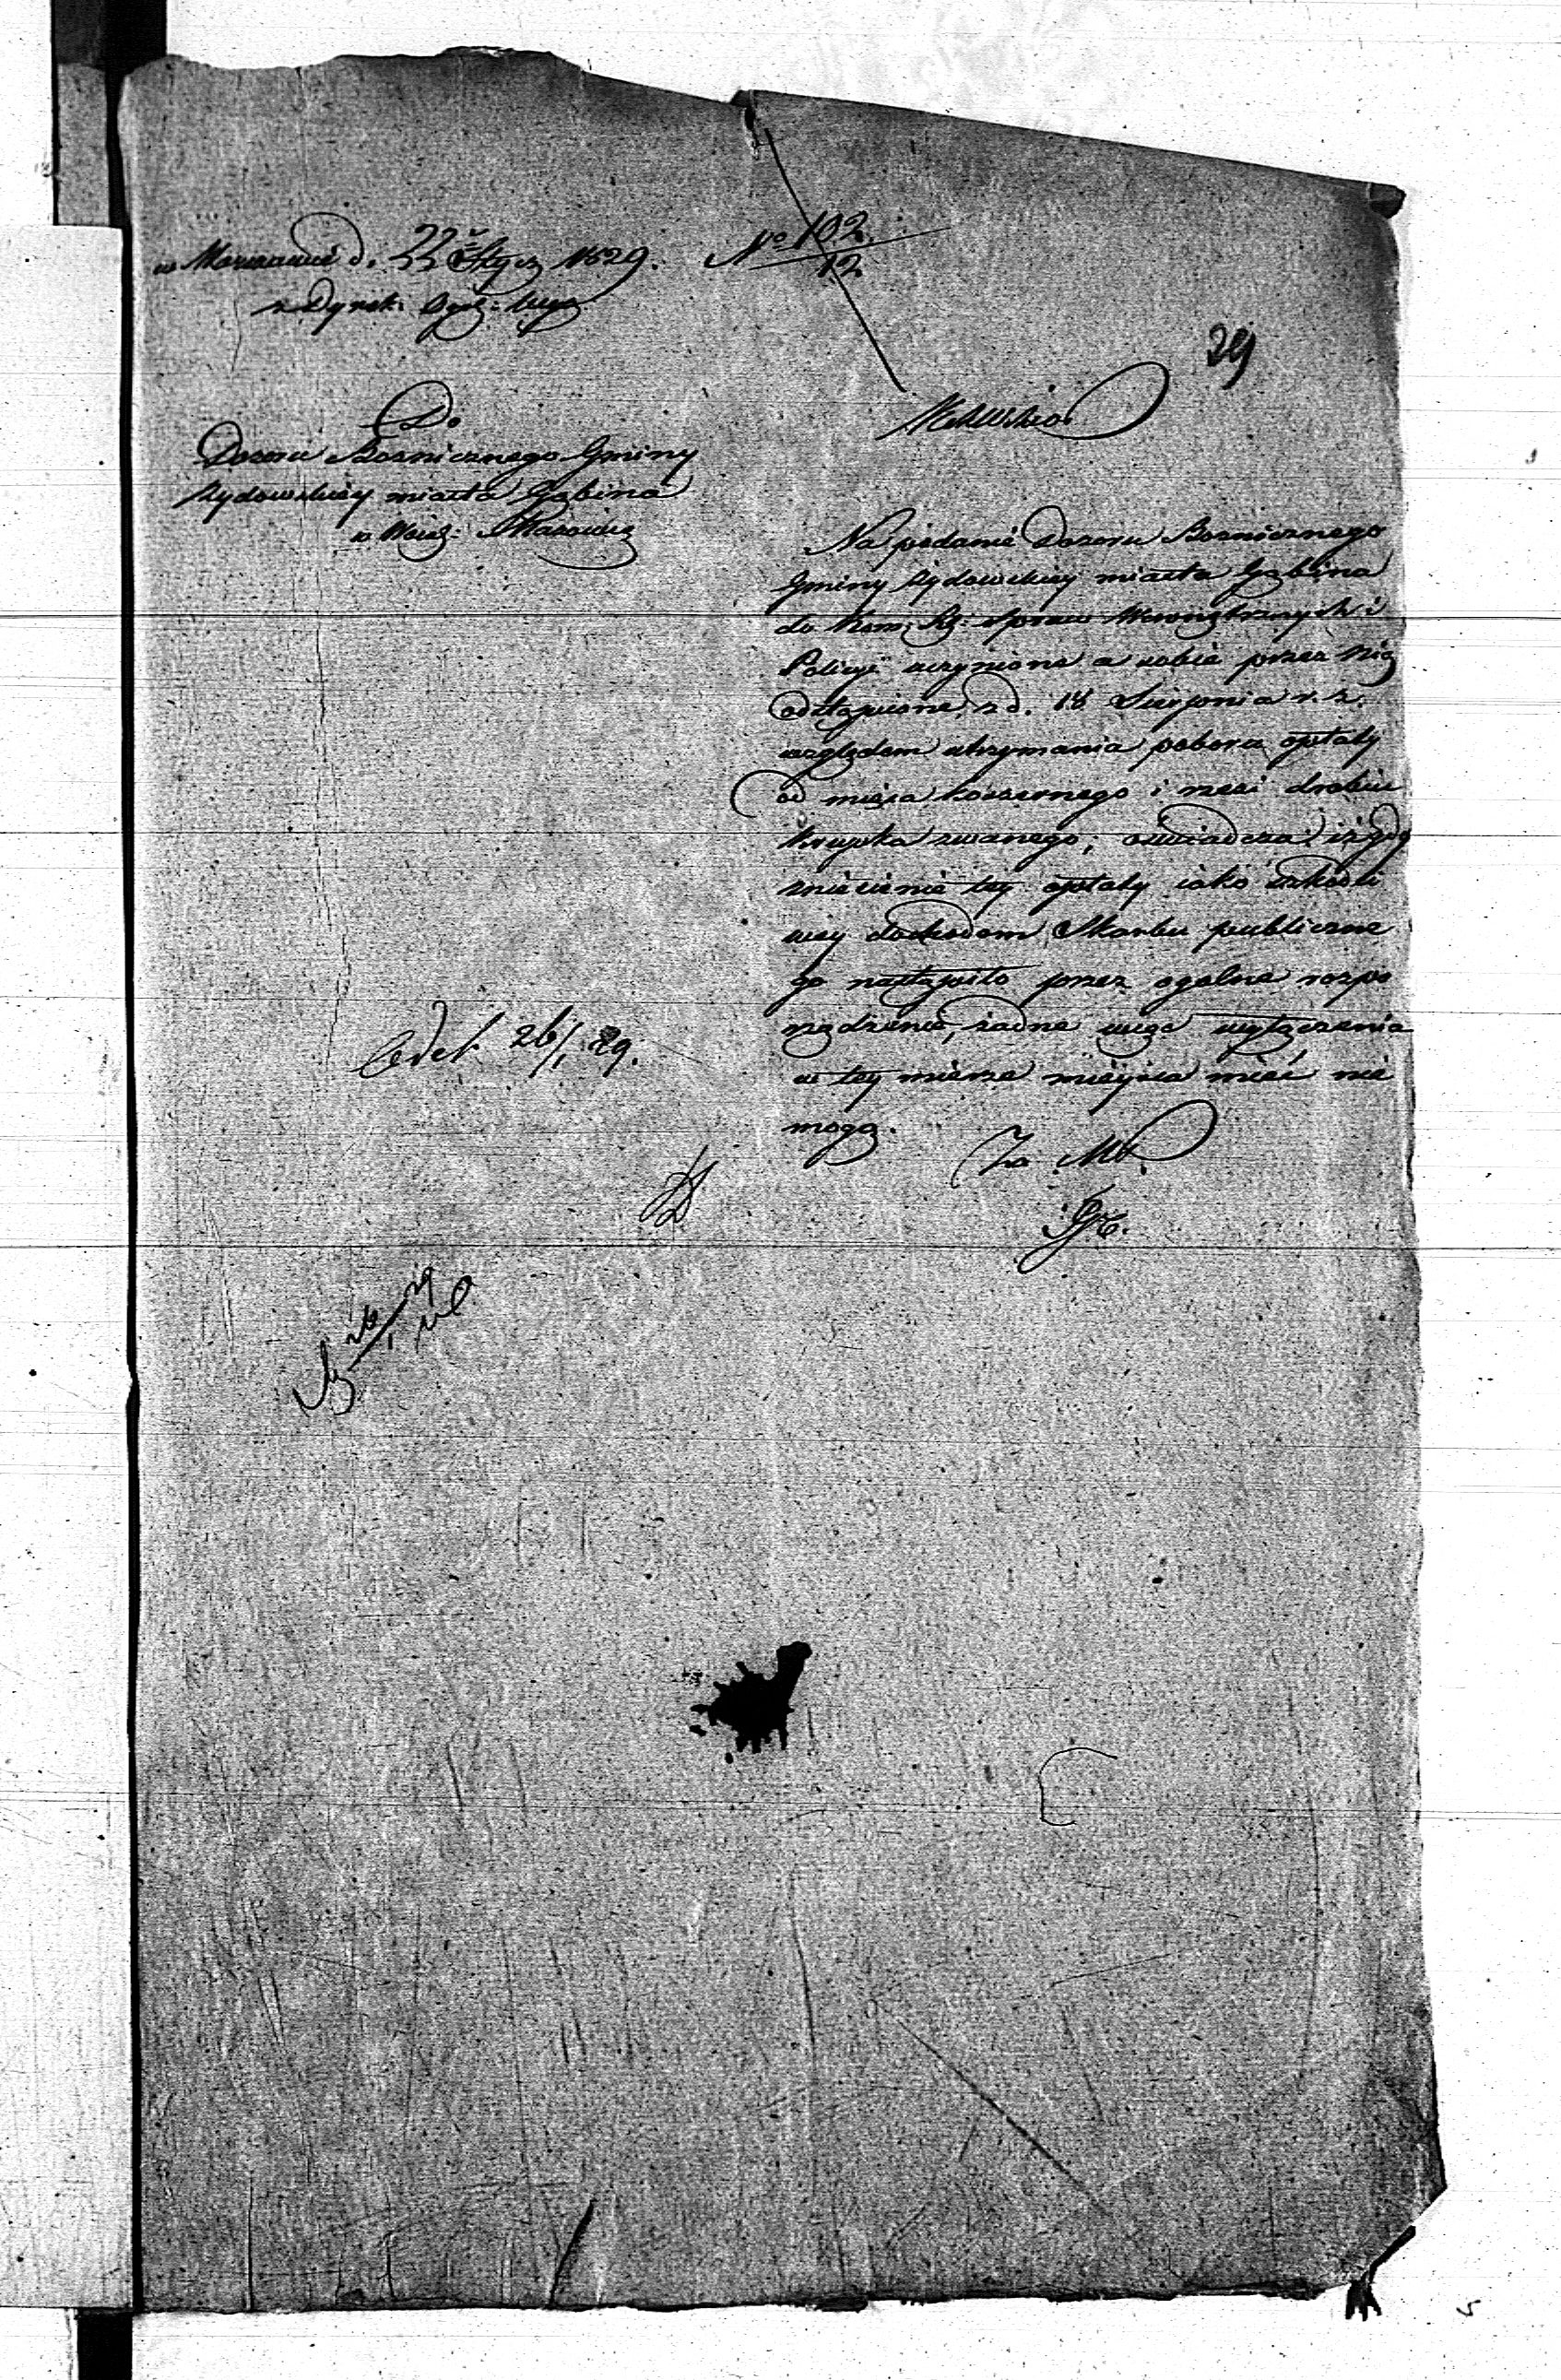 w Warszawie d. 22 Stycz 1829. No 102/12
29
Do
Dozoru Boznicznego Gminy
Żydowskiey miasta Gąbina
w Woiew: Mazowiec
Na podanie Dozoru Boznicznego
Gminy Żydowskiey miasta Gąbina
do Kom: Rz: Spraw Wewnętrznych i
Policyi uczynione a sobie przez nią
odstąpione, z d. 18 Sierpnia r. z.
względem utrzymania poboru opłaty
od mięsa koszernego i rzezi drobiu
krupka zwanego; oświadcza, iż gdy
zniesienie tey opłaty iako szkodli
wey dochodom Skarbu publiczne
go nastąpiło przez ogólne rozpo
rządzenie, żadne więc wyłączenia
w tey mierze mieysca mieć nie
mogą.
Za M.
26/1 29.
26/1 29